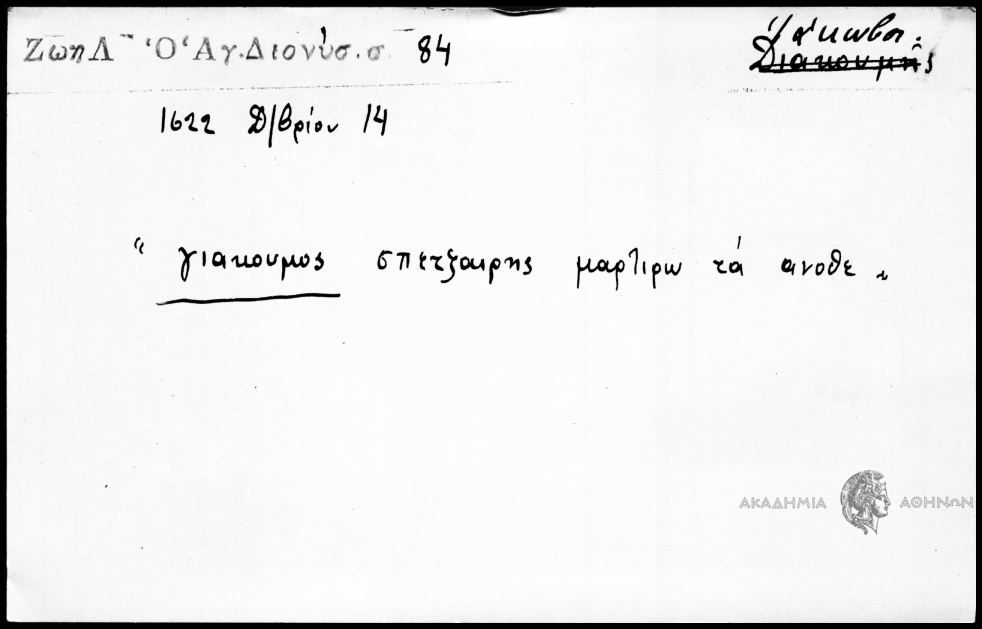 Ζωη Λ Ὁ Ἁγ. Διονύσ. σ. 84
Ἰάκωβος
Διακουμῆς
1622 Δ/βρίου 14
“ γιακουμος σπετζαιρης μαρτιρω τά ανοθε „
ΑΚΑΔΗΜΙΑ ΑΘΗΝΩΝ